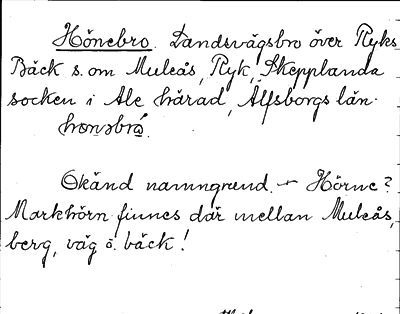 Hönebro. Landsvägsbro över Ryks
Bäck s. om Muleås, Ryk, Skepplanda
socken i Ale härad, Älfsborgs län.
Okänd namngrund. – Hörne?
Markhörn finnes där mellan Muleås,
berg, väg o. bäck!